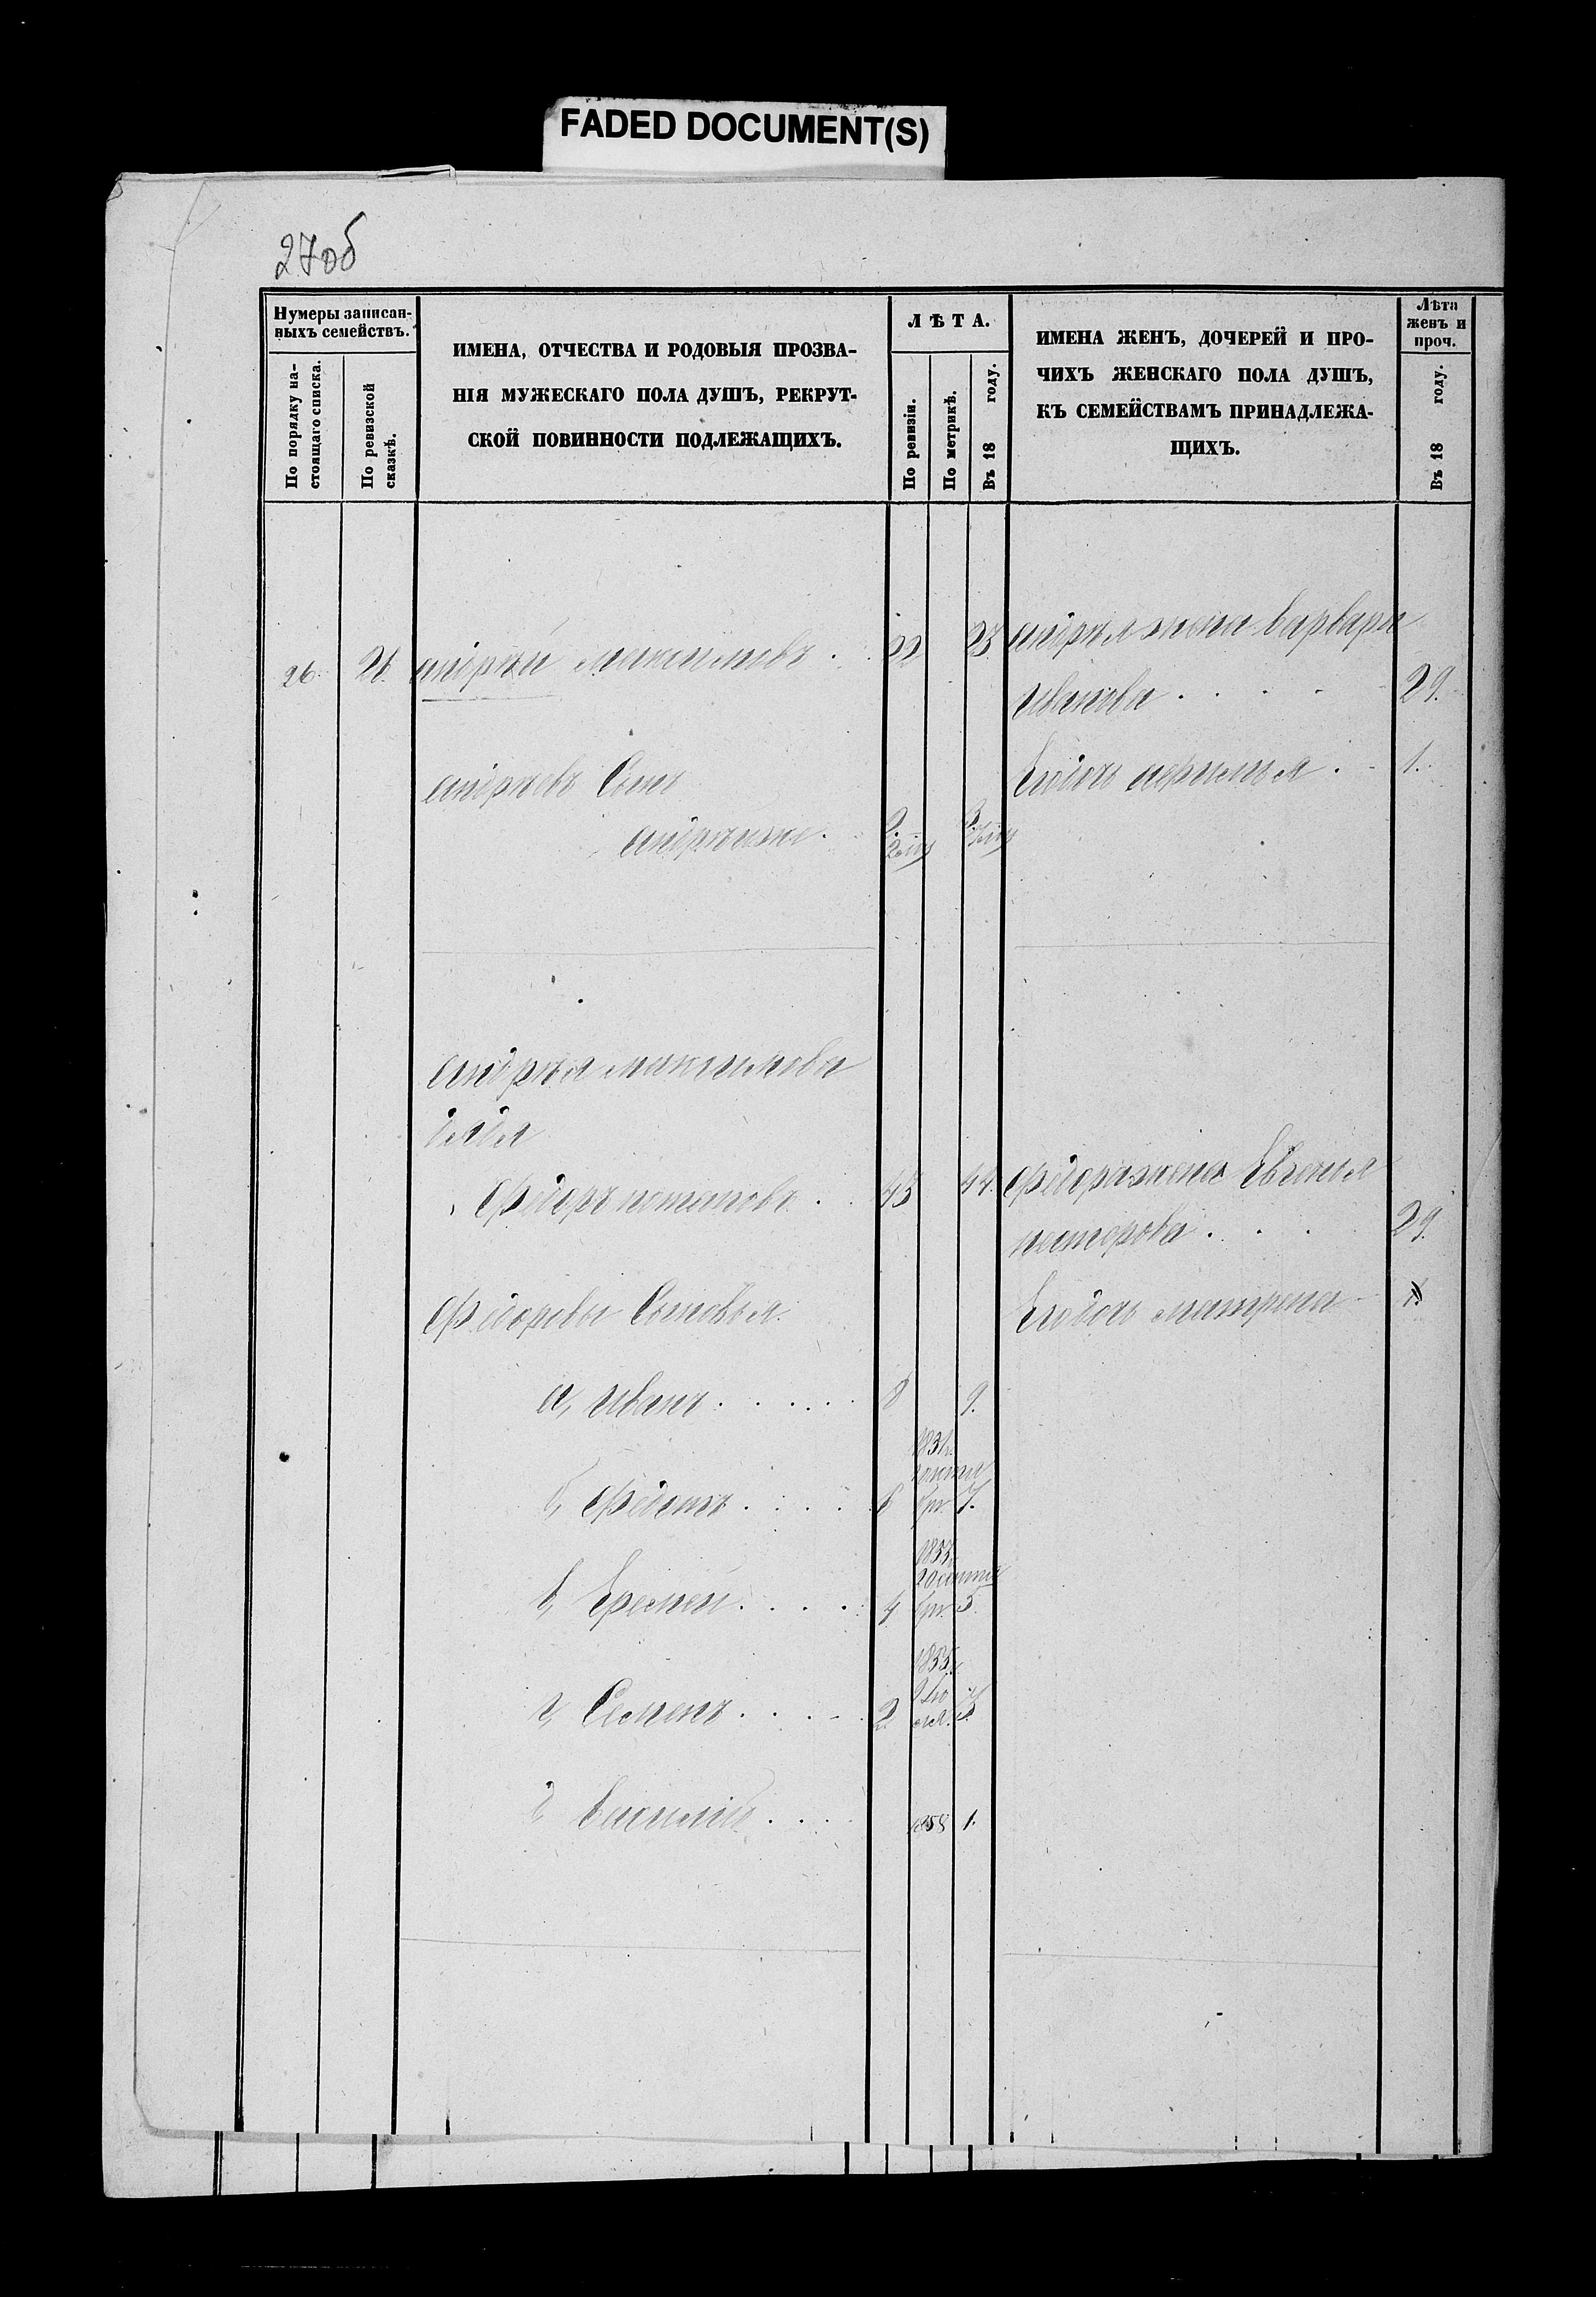 FADED DOCUMENT(S)
27об
Нумеры записан-
ныхъ семействъ.
По порядку на-
стоящаго списка.
По ревизской
сказкѣ.
ИМЕНА, ОТЧЕСТВА И РОДОВЫЯ ПРОЗВА-
НІЯ МУЖЕСКАГО ПОЛА ДУШЪ, РЕКРУТ-
СКОЙ ПОВИННОСТИ ПОДЛЕЖАЩИХЪ.
ЛѢТА.
По ревизіи.
По метрикѣ.
Въ 18 году.
ИМЕНА ЖЕНЪ, ДОЧЕРЕЙ И ПРО-
ЧИХЪ ЖЕНСКАГО ПОЛА ДУШЪ,
КЪ СЕМЕЙСТВАМЪ ПРИНАДЛЕЖА-
ЩИХЪ.
Лѣта
женъ и
проч.
Въ 18 году.
26. 26. андрѣй максимовъ . . 22 23. андрѣя жена варвара
Иванова . . . . 29.
андрѣевъ Сынъ
Егодочь . . 1.
андрѣя максимова
дядя
Федоръ потаповъ . . 43 44. федора жена Евгенья
нестерова . . . . 29.
Федоровы Сыновья.
Егодочь матрена
а, Иванъ . . . . . 8 9.
б, Федотъ . . . . 6 7.
в, Еремей . . . . 4 5.
г, Семенъ . . . . 2 1855 3.
д, Василій . . . 1858 1.